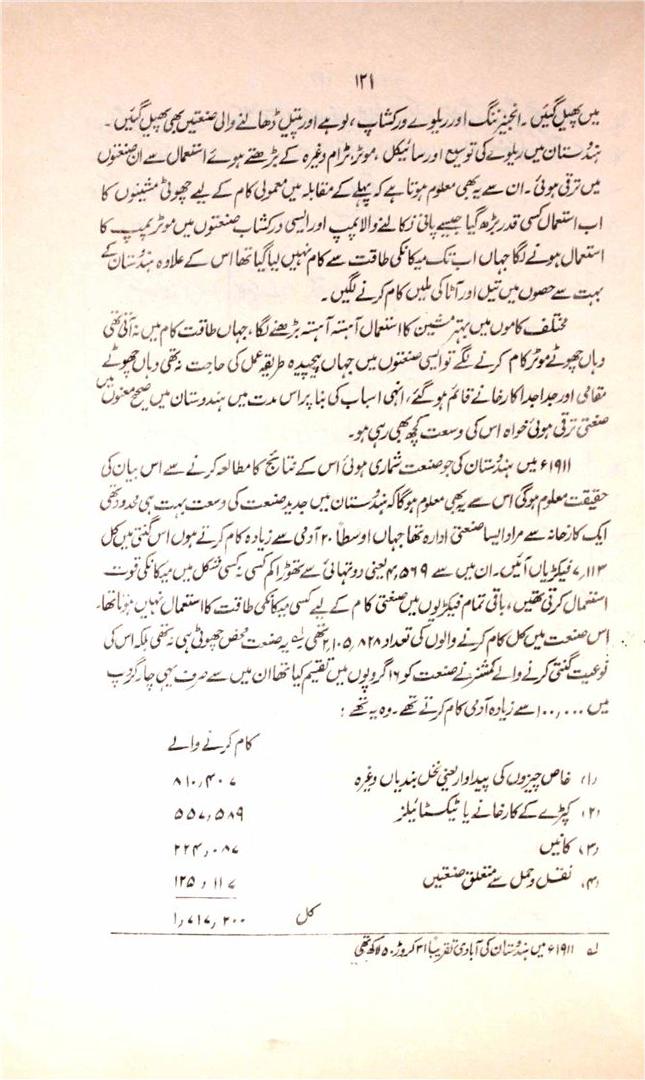 ۱۲۱
میں پھیل گئیں۔ انجینرنگ اور ریلوے ورکشاپ، لوہے اور پیتل ڈھالنے والی صنعتیں بھی پھیل گئیں۔
ہندوستان میں ریلوے کی توسیع اور سائیکل، موٹر، ٹرام وغیرہ کے بڑھتے ہوئے استعمال سے ان صنعتوں
میں ترقی ہوئی۔ ان سے یہ بھی معلوم ہوتا ہے کہ پہلے کے مقابلہ میں معمولی کام کے لیے چھوٹی مشینوں کا
اب استعمال کسی قدر بڑھ گیا جیسے پانی نکالنے والا پمپ اور ایسی ورکشاپ صنعتوں میں موٹر پمپ کا
استعمال ہونے لگا جہاں اب تک میکانکی طاقت سے کام نہیں لیا گیا تھا اس کے علاوہ ہندوستان کے
بہت سے حصوں میں تیل اور آٹا کی ملیں کام کرنے لگیں۔
مختلف کاموں میں بہتر مشین کا استعمال آہستہ آہستہ بڑھنے لگا، جہاں طاقت کام میں نہ آئی تھی
وہاں چھوٹے موٹر کام کرنے لگے تو ایسی صنعتوں میں جہاں پیچیدہ طریقۂ عمل کی حاجت نہ تھی وہاں چھوٹے
مقامی اور جدا جدا کارخانے قائم ہو گئے، انہی اسباب کی بنا پر اس مدت میں ہندوستان میں صحیح معنوں میں
صنعتی ترقی ہوئی خواہ اس کی وسعت کچھ بھی رہی ہو۔
۱۹۱۱ء میں ہندوستان کی جو صنعت شماری ہوئی اس کے نتائج کا مطالعہ کرنے سے اس بیان کی
حقیقت معلوم ہوگی اس سے یہ بھی معلوم ہوگا کہ ہندوستان میں جدید صنعت کی وسعت بہت ہی محدود تھی
ایک کارخانہ سے مراد ایسا صنعتی ادارہ تھا جہاں اوسطاً ۲۰ آدمی سے زیادہ کام کرتے ہوں اس گنتی میں کل
۷٫۱۱۳ فیکٹریاں آئیں۔ ان میں سے ۴٫۵۶۹ یعنی دو تہائی سے تھوڑا کم کسی نہ کسی شکل میں میکانکی قوت
استعمال کرتی تھیں، باقی تمام فیکٹریوں میں صنعتی کام کے لیے کسی میکانکی طاقت کا استعمال نہیں ہوتا تھا۔
اس صنعت میں کل کام کرنے والوں کی تعداد ۲٫۱۰۵٫۸۲۸ تھی لہ یہ صنعت محض چھوٹی ہی نہ تھی بلکہ اس کی
نوعیت گنتی کرنے والے کمشنر نے صنعت کو ۱۶ گروپوں میں تقسیم کیا تھا ان میں سے صرف یہی چار گروپ
میں ۱۰۰٫۰۰۰ سے زیادہ آدمی کام کرتے تھے۔ وہ یہ تھے:
کام کرنے والے
(۱) خاص چیزوں کی پیداوار یعنی نخل بندیاں وغیرہ ۸۱۰٫۴۰۷
(۲) کپڑے کے کارخانے یا ٹیکسٹائیلز ۵۵۷٫۵۸۹
(۳) کانیں ۲۲۴٫۰۸۷
(۴) نقل و حمل سے متعلق صنعتیں ۱۲۵٫۱۱۷
کل ۱٫۷۱۷٫۲۰۰
لہ ۱۹۱۱ء میں ہندوستان کی آبادی تقریباً ۳۱ کروڑ ۵۰ لاکھ تھی